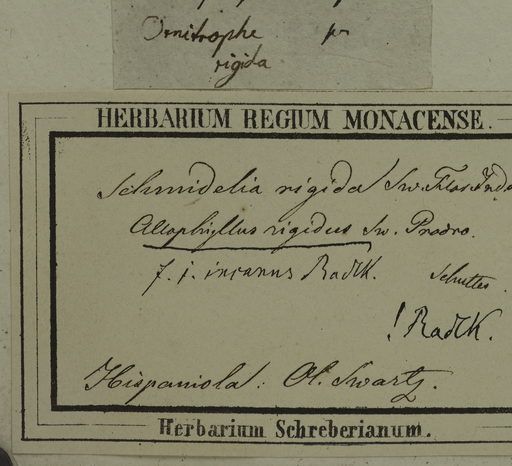 Ornitrophe
rigida
HERBARIUM REGIUM MONACENSE.
Schmidelia rigida Sw. Flor. Ind
Allophyllus rigidus Sw. Prodro.
f. j. incanus Radlk.
! Radlk.
Hispaniola: Ol. Swartz.
Herbarium Schreberianum.